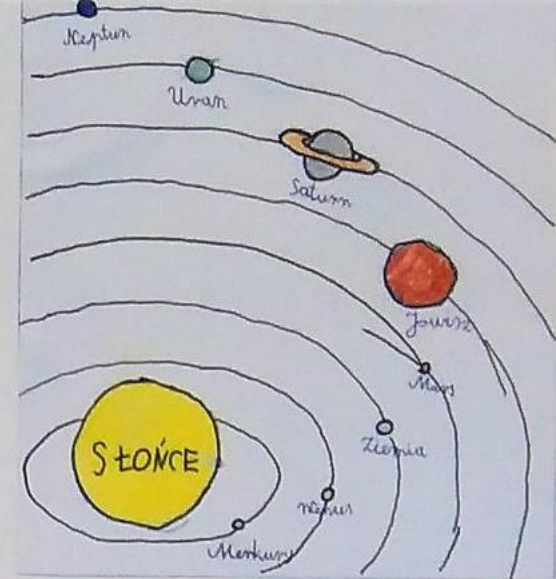 Neptun
Uran
Saturn
Jowisz
Mars
Ziemia
SŁOŃCE
Wenus
Merkury